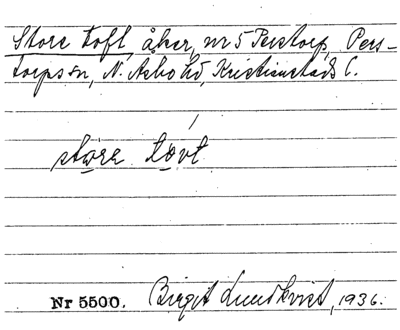 Store toft åker, nr 5 Perstorp, Pers-
torps sn, N. Åsbo hd, Kristianstads l.
störe tovt
Nr 5500. Birgit Lundkvist, 1936.